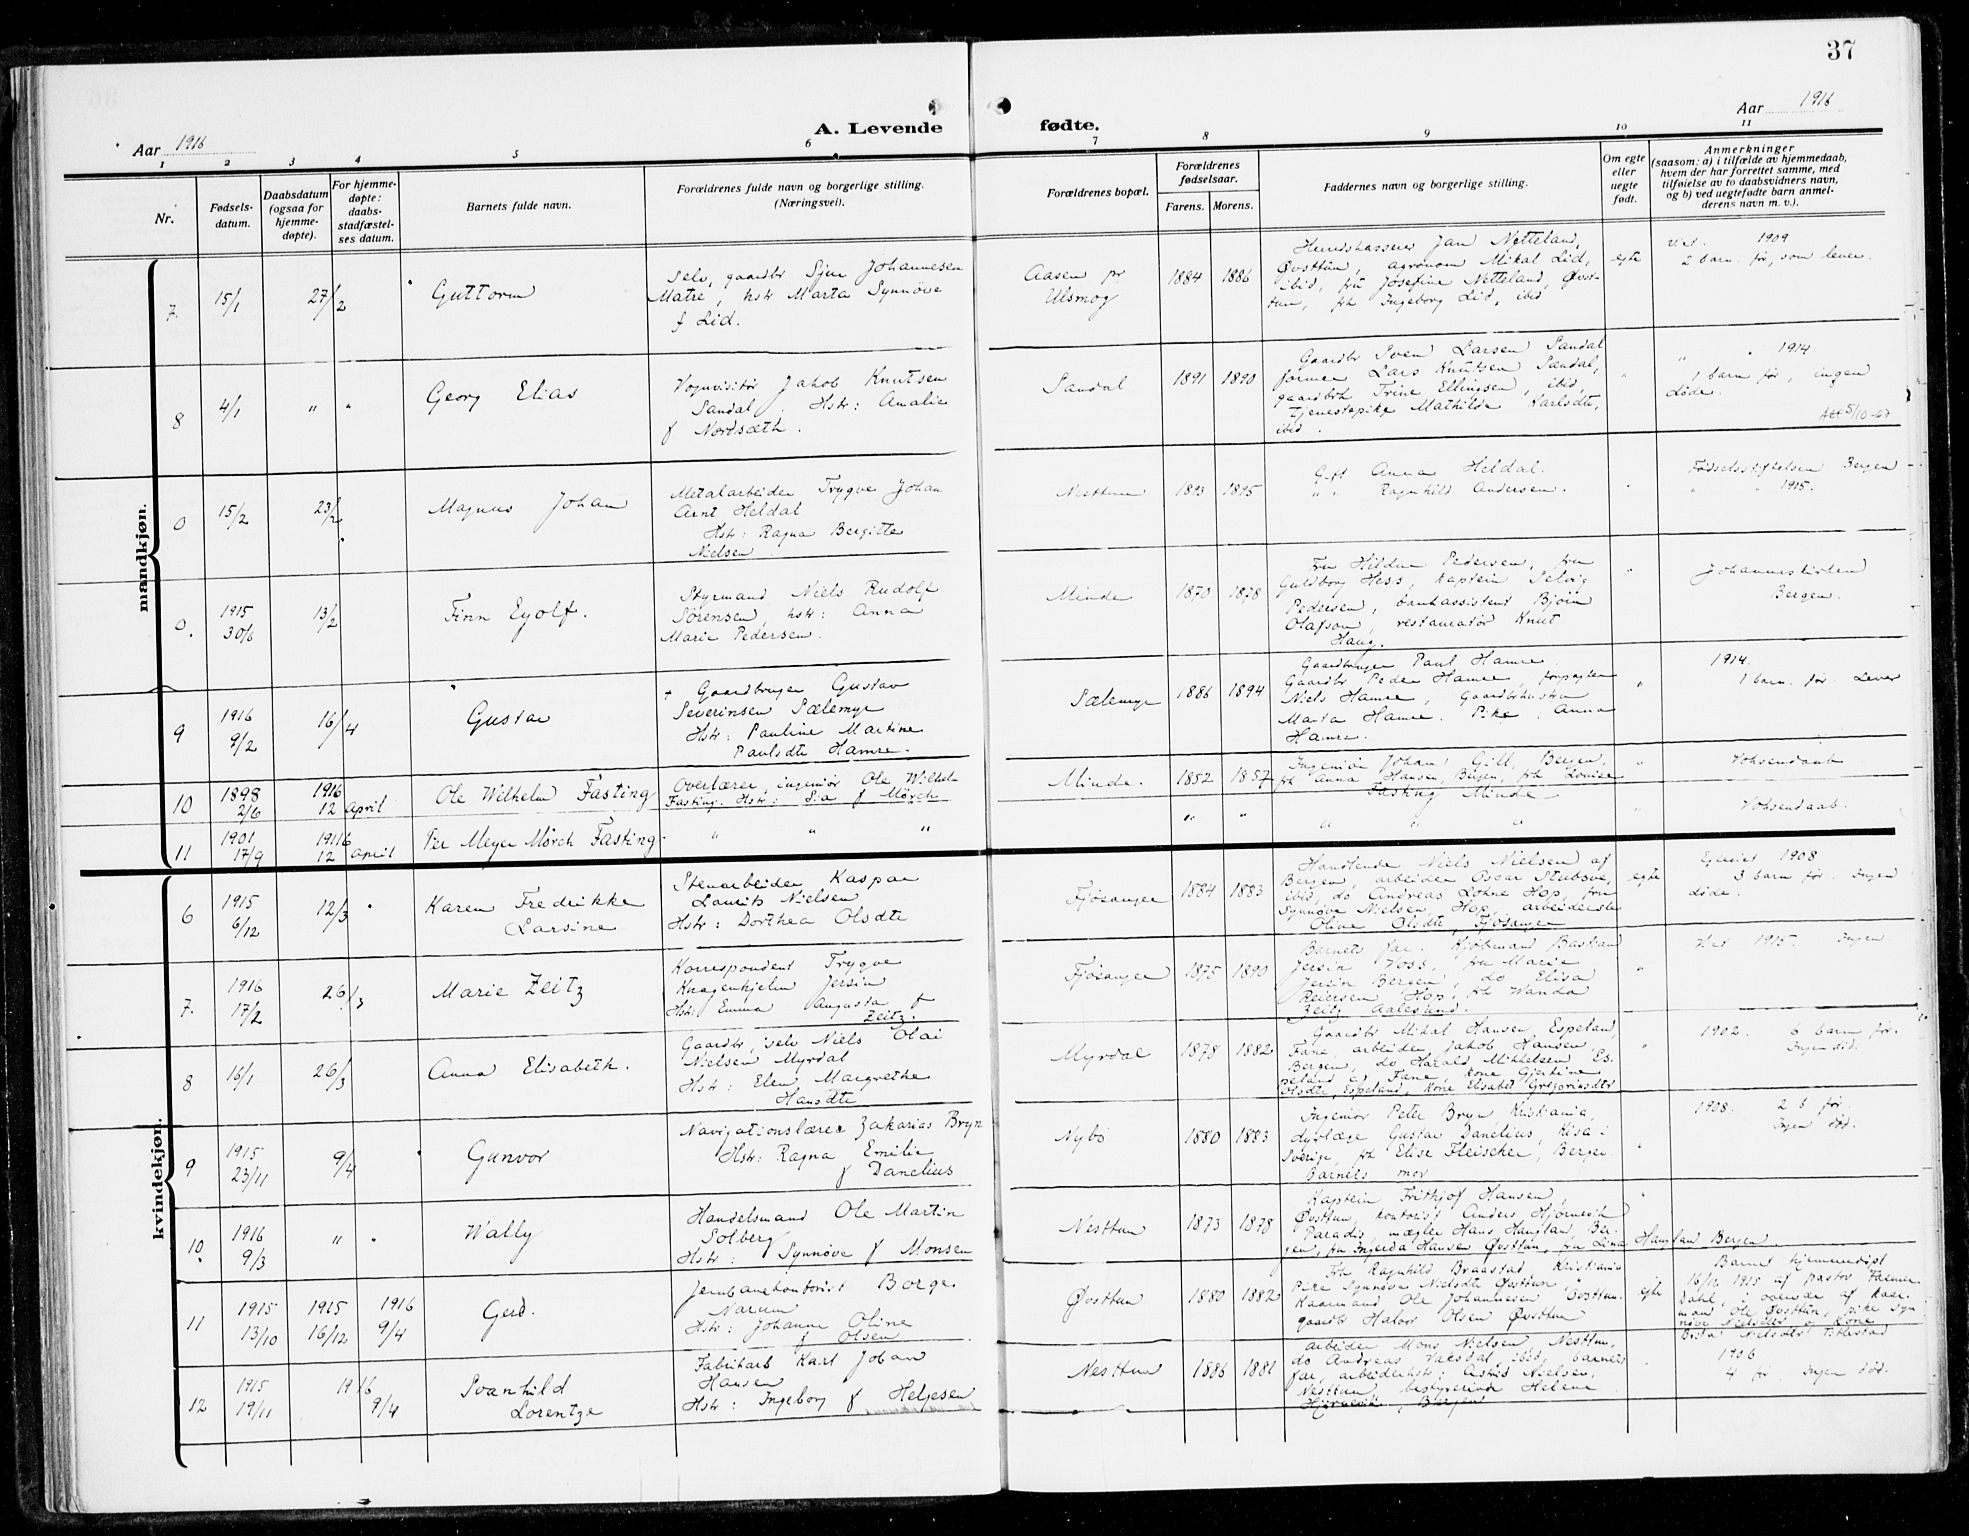 37
Aar 1916
A. Levende fødte.
Aar 1916
1 2 3 4 5 6 7 8 9 10 11
Nr.
Fødsels-
datum.
Daabsdatum
(ogsaa for
hjemme-
døpte).
For hjemme-
døpte:
daabs-
stadfæstel-
ses datum.
Barnets fulde navn.
Forældrenes fulde navn og borgerlige stilling.
(Næringsvei).
Forældrenes bopæl.
Forældrenes
fødselsaar.
Farens. Morens.
Faddernes navn og borgerlige stilling.
Om egte
eller
uegte
født.
Anmerkninger
(saasom: a) i tilfælde av hjemmedaab,
hvem der har forrettet samme, med
tilføielse av to daabsvidners navn,
og b) ved uegtefødte barn anmel-
derens navn m. v.).
mandkjøn.
7. 15/1 27/2 Guttorm
Selv, gaardbr Sjur Johannesen
Matre, hstr Marta Synnøve
f Lid.
Aasen pr
Ulsmog
1884 1886
Herredskasserer Jan Netteland,
Øvsttun, agronom Mikal Lid,
ibid, fru Josefine Netteland, Øvst-
tun, frk Ingeborg Lid, ibid
egte
Viet. 1909
2 barn før, som lever.
8 4/1 " " Georg Elias
Vognvisitør Jakob Knutsen
Sandal. Hstr: Amalie
f Nordsæth.
Sandal 1891 1890
Gaardbr Sven Larsen Sandal
former Lars Knutsen Sandal,
gaardbrh Trine Ellingsen, ibid,
tjenestepike Mathilde Karlsdtr,
ibid.
"
" " 1914
1 barn før, ingen
døde.
Att 5/10-67
0 15/2 23/2 Magnus Johan
Metalarbeider Trygve Johan
Arnt Heldal
Hstr: Ragna Bergitte
Nielsen
Nesttun 1893 1895
Gift Anna Heldal.
" " Ragnhild Andersen.
"
Fødselsstiftelsen Bergen
" " 1915.
0. 1915
30/6 13/2 Finn Eyolf.
Styrmand Niels Rudolf
Sørensen, hstr: Anna
Marie Pedersen.
Minde 1870 1878
Fru Hildur Pedersen, fru
Guldborg Hess, kaptein Selvig
Pedersen, bankassistent Bjørn
Olafson, restauratør Knut
Haug.
"
Johanneskirken
Bergen.
9 1916
9/2 16/4 Gustav
+ Gaardbruger Gustav
Severinsen Sælemyr
Hstr: Pauline Martine
Paulsdtr Hamre.
Sælemyr 1886 1894
Gaardbruger Paul Hamre.
Gaardbr Peder Hamre, forpagter
Niels Hamre, Gaardbrhustru
Marta Hamre. Pike: Anna
Hamre.
"
1914.
1 barn før. Lever
10 1898
2/6 1916
12 april Ole Wilhelm Fasting
Overlærer, ingeniør Ole Wilhelm
Fasting. Hstr: Sia f Mørch
Minde. 1852 1857
Ingeniør Johan Gill, Bergen,
frk Anna Hansen, Bergen, frk Louise
Fasting Minde
"
Voksendaab
11 1901
17/9 1916
12 april Per Meyer Mørch Fasting
" " "
" "
" " "
"
Voksendaab.
kvindekjøn.
6 1915
6/12 12/3 " Karen Fredrikke
Larsine
Stenarbeider Kaspar
Lauritz Nielsen
Hstr: Dorthea Olsdtr
Fjøsanger 1884 1883
Handlende Niels Nielsen af
Bergen, arbeider Oscar Stubsve,
ibid, do Andreas Løhne Hop, fru
Synnøve Nielsen Hop, arbeiderske
Oline Olsdtr, Fjøsanger
egte
Egteviet 1908
3 barn før. Ingen
døde.
7. 1916
17/2 26/3 Marie Zeitz
Korrespondent Trygve
Kragenhjelm Jersin
Hstr: Emma Augusta f
Zeitz.
Fjøsanger 1875 1890
Barnets far. Kjøbmand Bastian
Jersin Voss, fru Marie
Jersin Bergen, do Elisa
Reiersen Hop, frk Wanda
Zeitz Aalesund.
"
Viet 1915. Ingen
8 16/1 26/3 Anna Elisabeth.
Gaardbr, selv Niels Olai
Nielsen Myrdal
Hstr: Elen Margrethe
Hansdtr
Myrdal 1878 1882
Gaardbr Mikal Hansen, Espeland,
Fane, arbeider Jakob Hansen,
Bergen, do Harald Mikkelsen Es-
peland af Fane, kone Gjertine
Olsdtr, Espeland, kone Elisabet Gregoriusdtr
"
1902. 6 barn før.
Ingen død.
9 1915
23/11 9/4 Gunvor
Navigationslærer Zakarias Bryn
Hstr: Ragna Emilie
f Danelius
Nybø 1880 1883
Ingeniør Peter Bryn Kristiania,
dyrlæge Gustav Danelius, Kisa i
Sverige, frk Elise Fleischer, Bergen.
Barnets mor
"
1908. 2 b før.
Ingen død.
10. 1916
9/3 " " Wally
Handelsmand Ole Martin
Solberg
Hstr: Synnøve f Monsen
Nesttun 1873 1878
Kaptein Frithjof Hansen,
Øvsttun, kontorist Anders Hjørnevik
Paradis, mægler Hans Haugtan, Ber-
gen, fru Ingerda Hansen Øvsttun, fru Lina Haugtan Bergen
"
11 1915
13/10 1915
16/12 1916
9/4 Gerd.
Jernbanekontorist Borge
Narum
Hstr: Johanne Oline
f Olsen
Øvsttun 1880 1882
Frk Ragnhild Braastad Kristiania
Pike Synnøve Nielsdtr Øvsttun,
Kaarmand Ole Johannesen Øvsttun.
gaardbr Halvor Olsen Øvsttun
egte
Barnet hjemmedøpt
16/12 1915 af pastor Fasmer
Dahl, i overvær af kaar-
mand Ole Øvsttun, pike Syn
nøve Nielsdtr og kone
Brita Nielsdtr Titlestad
12 1915
19/11 1916
9/4 Svanhild
Lorentze
Fabrikarb Karl Johan
Hansen
Hstr: Ingeborg f Helgesen
Nesttun 1886 1881
Arbeider Mons Nielsen, Nesttun,
do Andreas Vaksdal, ibid, barnets
far, arbeiderhstr: Astrid Nielsen,
Nesttun, bestyrerinde Helene
Hjørnevik, Bergen
"
1906
4 før. Ingen død.